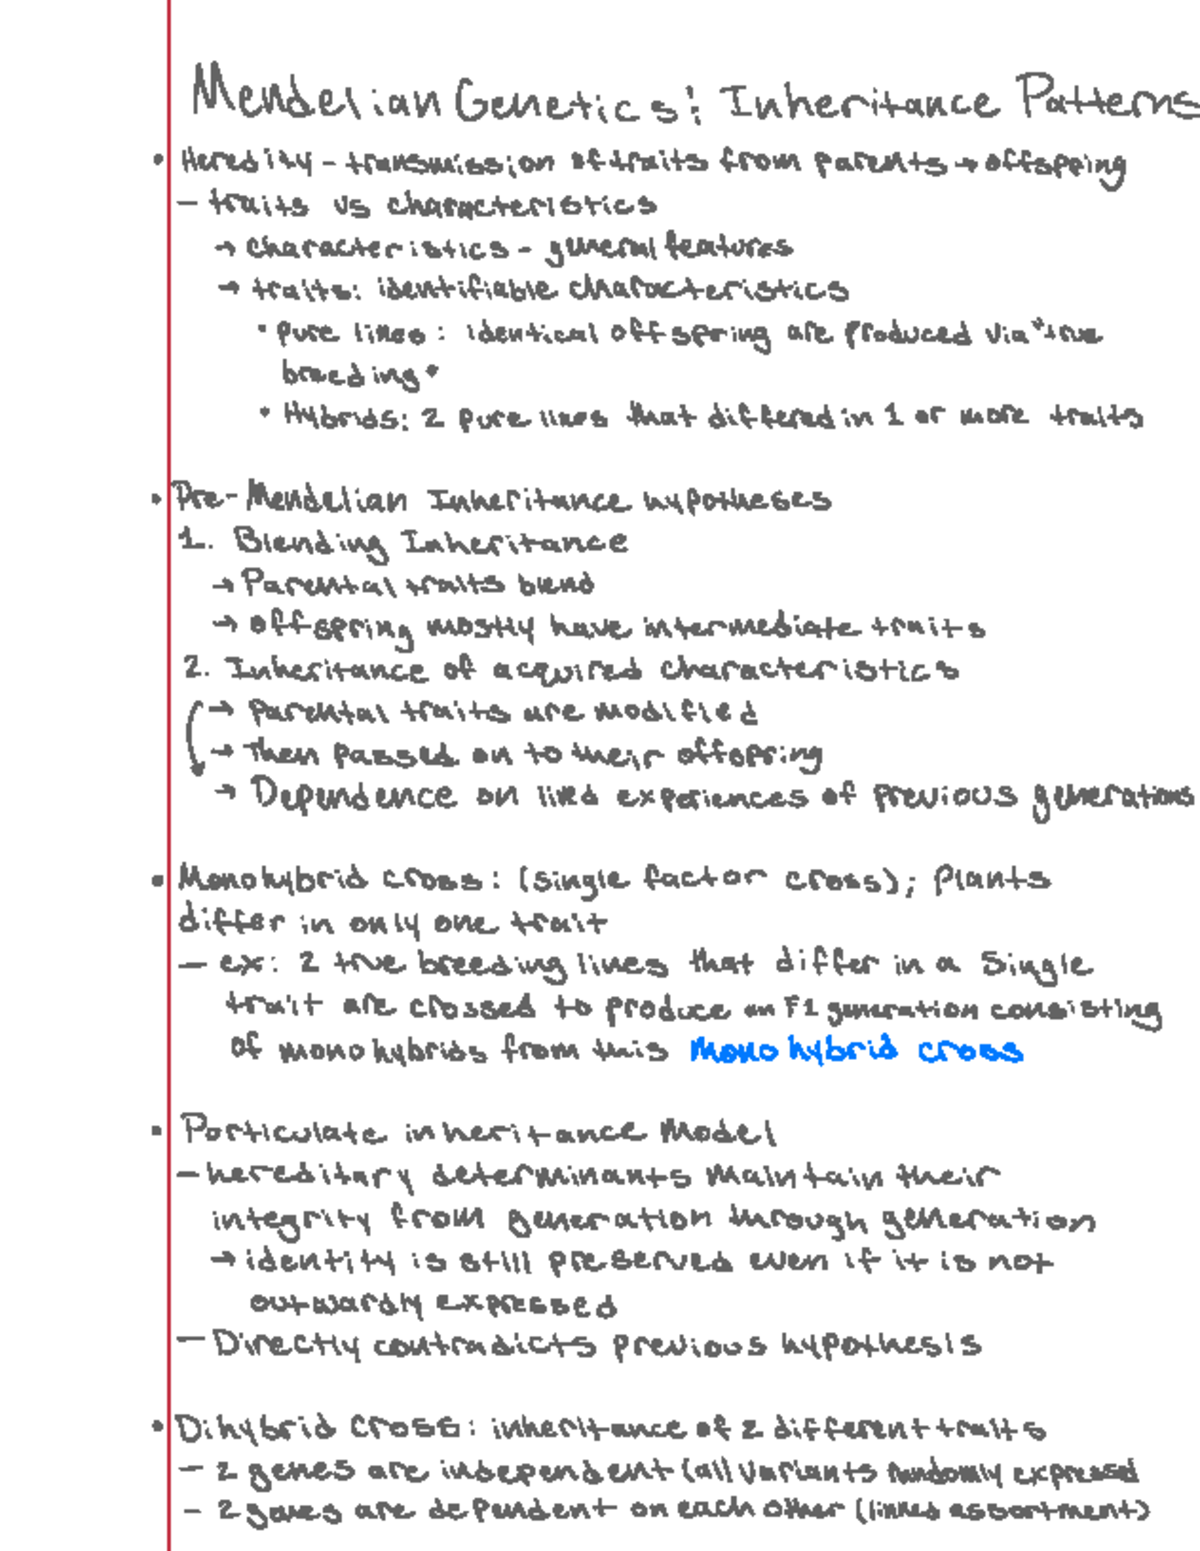 Mendelian Genetics: Inheritance Patterns
• Heredity - transmission of traits from parents → offspring
- traits vs characteristics
→ characteristics - general features
→ traits: identifiable characteristics
• pure lines: identical offspring are produced via "true
breeding"
• Hybrids: 2 pure lines that differed in 1 or more traits
• Pre-Mendelian Inheritance hypotheses
1. Blending Inheritance
→ Parental traits blend
→ offspring mostly have intermediate traits
2. Inheritance of acquired characteristics
→ Parental traits are modified
→ Then passed on to their offspring
→ Dependence on lived experiences of previous generations
• Monohybrid cross: (single factor cross); Plants
differ in only one trait
- ex: 2 true breeding lines that differ in a Single
trait are crossed to produce an F1 generation consisting
of monohybrids from this Monohybrid cross
• Particulate inheritance Model
- hereditary determinants maintain their
integrity from generation through generation
→ identity is still preserved even if it is not
outwardly expressed
- Directly contradicts previous hypothesis
• Dihybrid Cross: inheritance of 2 different traits
- 2 genes are independent (all variants randomly expressed
- 2 genes are dependent on each other (linked assortment)